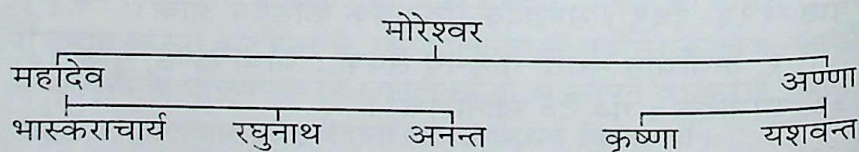 मोरेश्वर
महादेव अण्णा
भास्कराचार्य रघुनाथ अनन्त कृष्णा यशवन्त